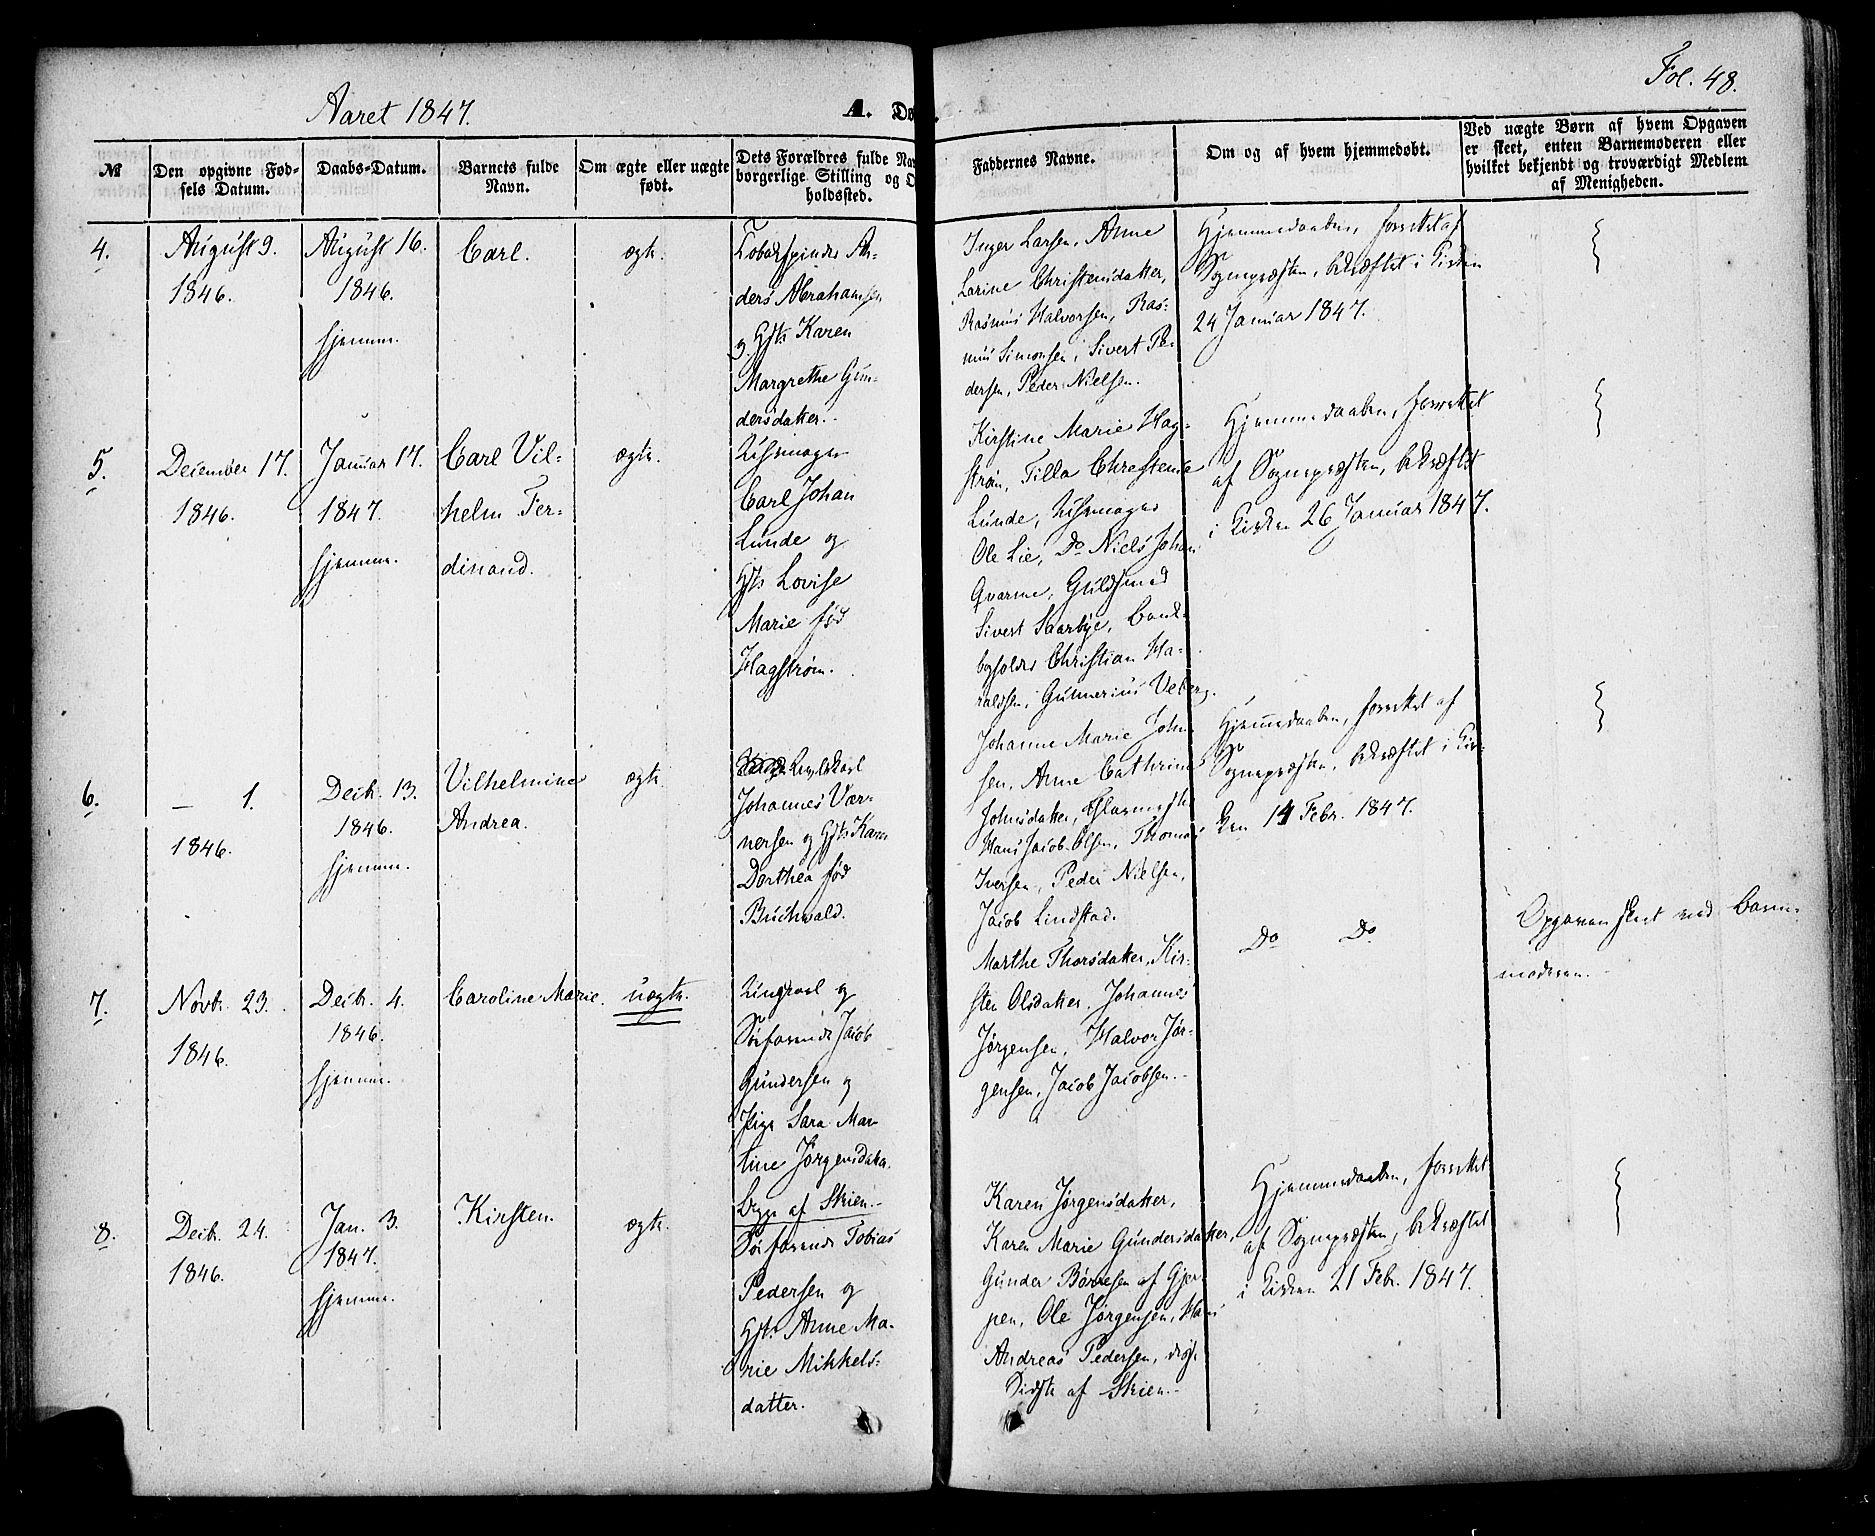 Aaret 1847.
A. Dø
Fol. 48.
№
Den opgivne Fød-
sels Datum.
Daabs-Datum.
Barnets fulde
Navn.
Om ægte eller uægte
født.
Dets Forældres fulde Nav
borgerlige Stilling og O
holdssted.
Faddernes Navne.
Om og af hvem hjemmedøbt.
Ved uægte Børn af hvem Opgaven
er skeet, enten Barnemoderen eller
hvilket bekjendt og troværdigt Medlem
af Menigheden.
4.
August 9.
1846.
August 16.
1846.
hjemme.
Carl.
ægte.
Tobakspinder An-
ders Abrahamsen
og Hst. Karen
Margrethe Gun-
dersdatter.
Inger Larsen, Anne
Larine Christensdatter,
Rasmus Halvorsen, Ras-
mus Simonsen, Sivert Pe-
dersen, Peder Nielsen.
Hjemmedaaben, forrettet af
Sognepræsten, bekræftet i Kirken
24 Januar 1847.
5.
December 17.
1846.
Januar 17.
1847.
hjemme.
Carl Vil-
helm Fer-
dinand.
ægte.
Uhrmager
Carl Johan
Lunde og
Hst. Lovise
Marie fød
Hagstrøm.
Kirstine Marie Hag-
strøm, Tilla Christense
Lunde, Uhrmager
Ole Lie, Do Niels Johan
Qvarme, Guldsmed
Sivert Saarbye,
Christian Ha-
raldsen, Gunnerius Veberg.
Hjemmedaaben, forrettet
af Sognepræsten, bekræftet
i Kirken 26 Januar 1847.
6.
— 1.
1846.
Decb. 13.
1846.
hjemme.
Vilhelmine
Andrea.
ægte
Johannes Vær-
nersen og Hst. Karen
Dorthea fød
Buchwald.
Johanne Marie John-
sen, Anne Cathrine
Johnsdatter, Glarmester
Hans Jacob Olsen, Thomas
Iversen, Peder Nielsen,
Jacob Lindstad.
Hjemmedaaben, forrettet af
Sognepræsten, bekræftet i Kir-
ken 14 Febr. 1847.
7.
Novb. 23.
1846.
Decb. 4.
1846.
hjemme.
Caroline Marie.
uægte.
Ungkarl og
Søfarende Jacob
Gundersen og
Pige Sara Mar-
line Jørgensdatter.
Begge af Skien.
Marthe Thorsdatter, Kir-
sten Olsdatter, Johannes
Jørgensen, Halvor Jør-
gensen, Jacob Jacobsen.
Do Do
Opgaven skeet ved Barne-
moderen.
8.
Decb. 24.
1846.
Jan. 3.
1847.
hjemme.
Kirsten.
ægte.
Søfarende Tobias
Pedersen og
Hst. Anne Ma-
rie Mikkels-
datter.
Karen Jørgensdatter,
Karen Marie Gundersdatter,
Gunder Børresen af Gjer-
pen, Ole Jørgensen, Hans
Andreas Pedersen,
Sidste af Skien.
Hjemmedaaben, forrettet
af Sognepræsten, bekræftet
i Kirken 21 Febr. 1847.